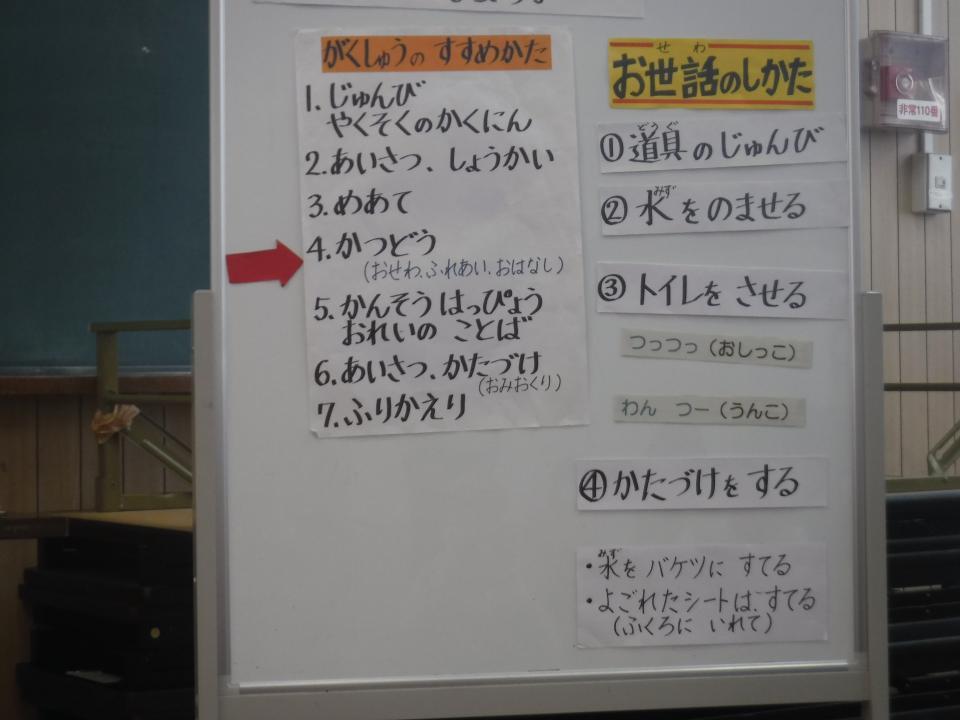 がくしゅうの すすめかた
1. じゅんび
やくそくのかくにん
2. あいさつ、しょうかい
3. めあて
4. かつどう
(おせわ、ふれあい、おはなし)
5. かんそう はっぴょう
おれいの ことば
6. あいさつ、かたづけ
(おみおくり)
7. ふりかえり
せ わ
お世話のしかた
どうぐ
①道具のじゅんび
みず
②水をのませる
③トイレを させる
つっつっ(おしっこ)
わん つー(うんこ)
④かたづけを する
みず
・水を バケツに すてる
・よごれたシートは、すてる
(ふくろに いれて)
非常110番